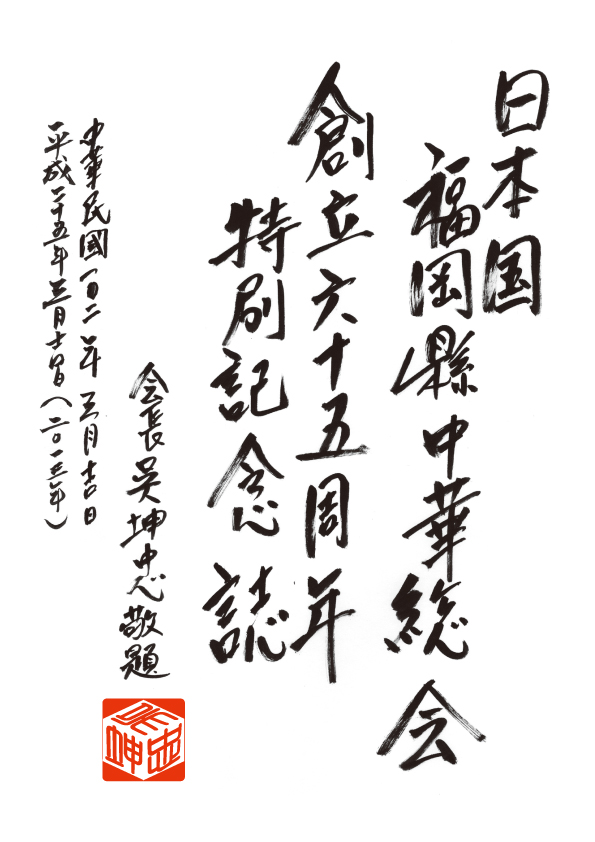 日本国
福岡縣中華総会
創立六十五周年
特刷記念誌
会長吳坤忠敬題
中華民國一百二年三月吉日
平成二十五年三月吉日(二〇一三年)
吳坤忠